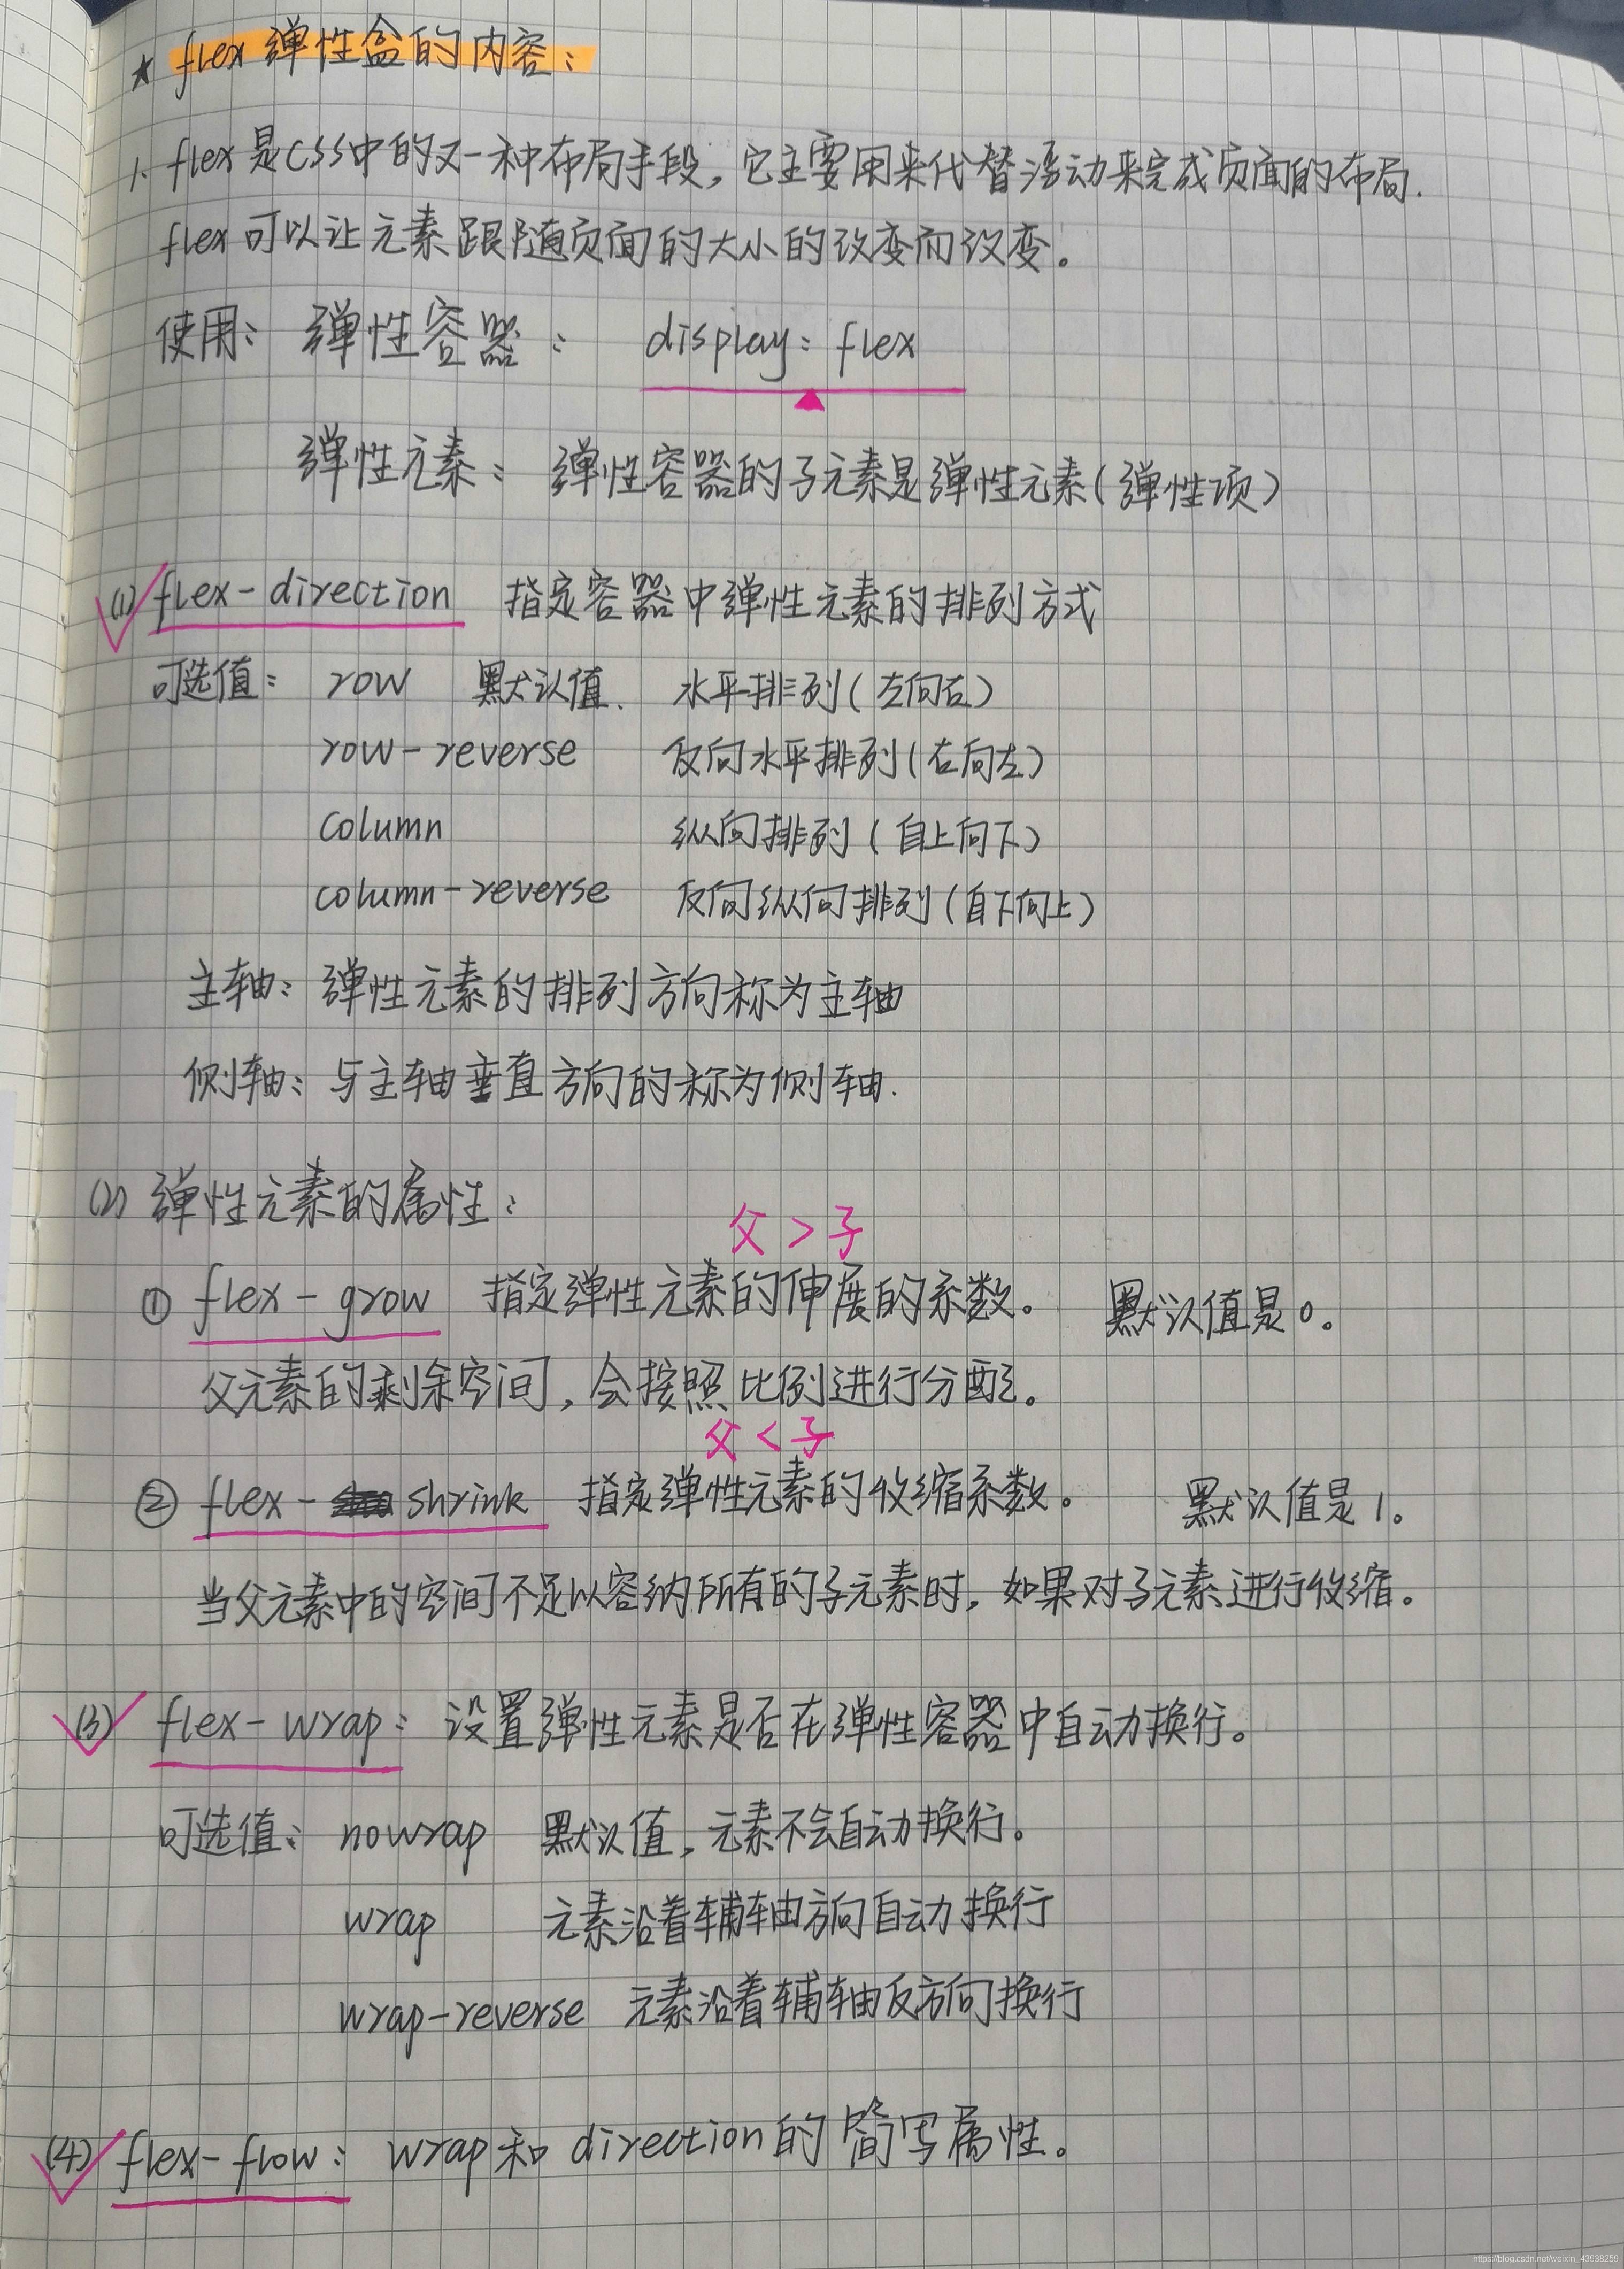 ★ flex 弹性盒的内容：
1. flex是CSS中的又一种布局手段，它主要用来代替浮动来完成页面的布局.
flex可以让元素跟随页面的大小的改变而改变。
使用： 弹性容器： display：flex
弹性元素： 弹性容器的子元素是弹性元素(弹性项)
(1) flex-direction 指定容器中弹性元素的排列方式
可选值： row 默认值. 水平排列(左向右)
row-reverse 反向水平排列(右向左)
column 纵向排列(自上向下)
column-reverse 反向纵向排列(自下向上)
主轴：弹性元素的排列方向称为主轴
侧轴：与主轴垂直方向的称为侧轴.
(2) 弹性元素的属性：
父>子
① flex-grow 指定弹性元素的伸展的系数。 默认值是0。
父元素的剩余空间，会按照比例进行分配。
父<子
② flex-shrink 指定弹性元素的收缩系数。 默认值是1。
当父元素中的空间不足以容纳所有的子元素时，如果对子元素进行收缩。
(3) flex-wrap：设置弹性元素是否在弹性容器中自动换行。
可选值： nowrap 默认值，元素不会自动换行。
wrap 元素沿着辅轴方向自动换行
wrap-reverse 元素沿着辅轴反方向换行
(4) flex-flow： wrap和direction的简写属性。
https://blog.csdn.net/weixin_43938259